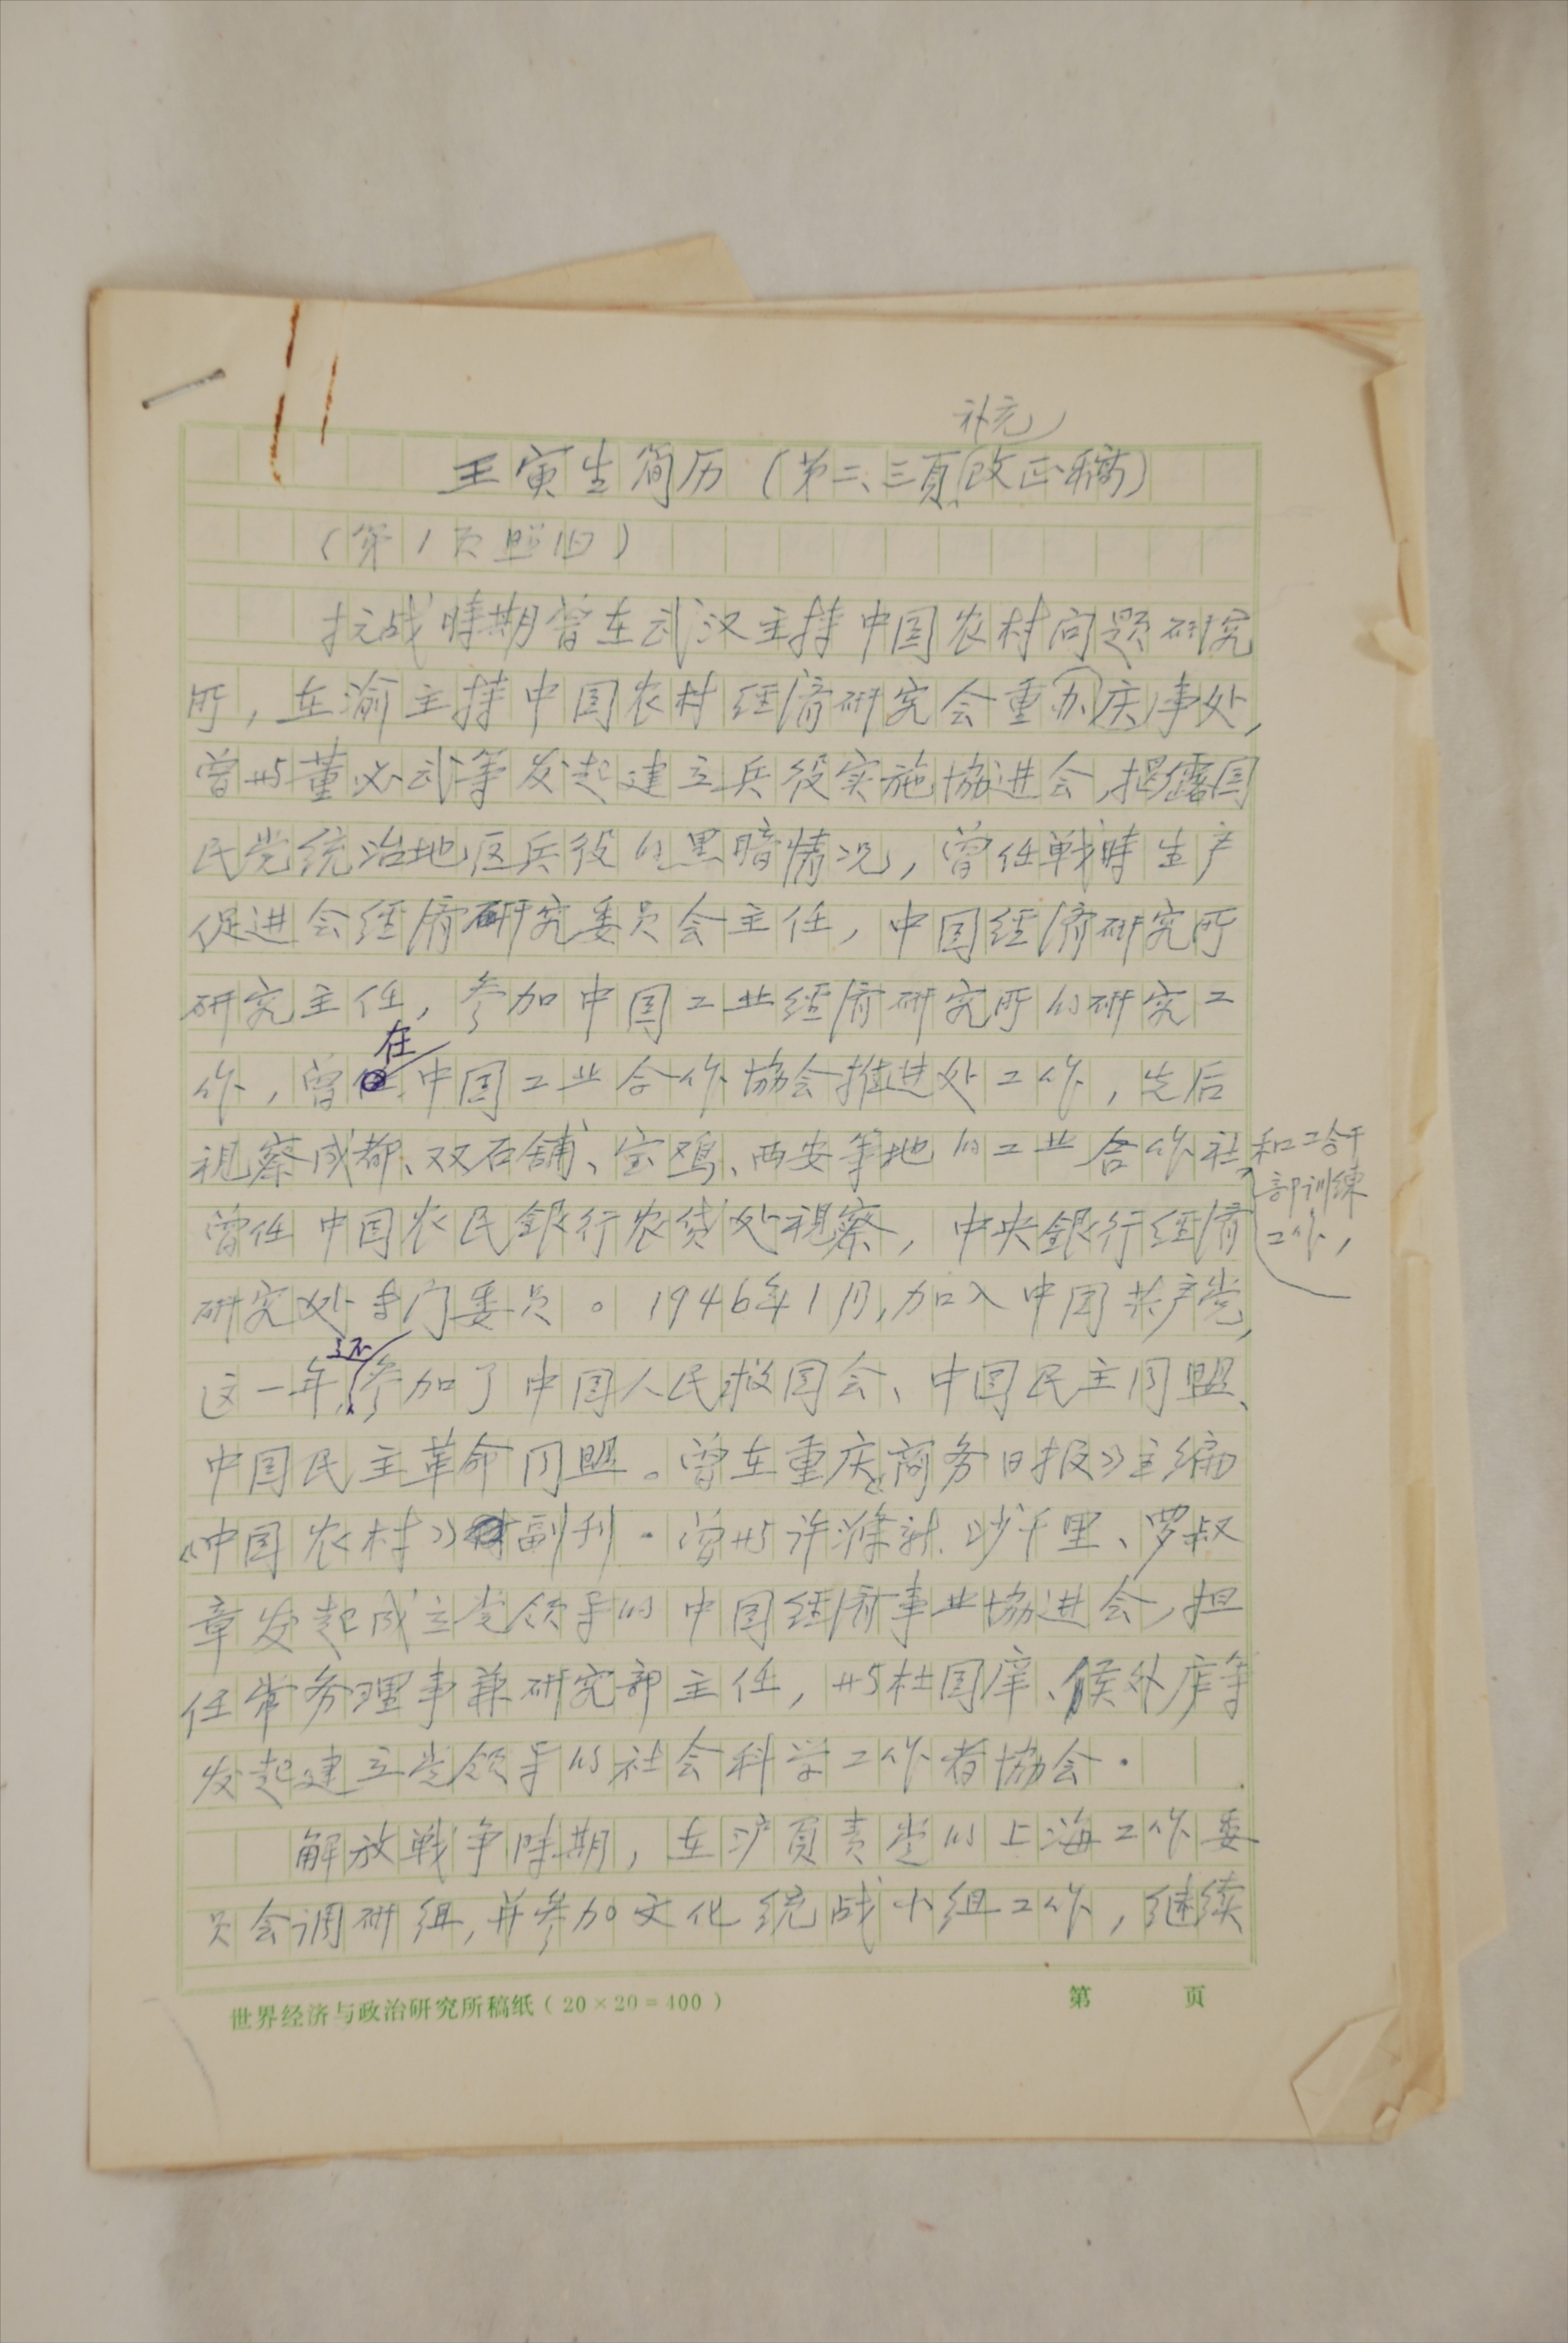 补充
王寅生简历（第二、三頁改正稿）
（第1页照旧）
抗战時期曾在武汉主持中国农村问题研究
所，在渝主持中国农村经济研究会重庆办事处，
曾与董必武等发起建立兵役实施協进会，揭露国
民党统治地区兵役的黑暗情况，曾任戰時生产
促进会经济研究委员会主任，中国经济研究所
研究主任，参加中国工业经济研究所的研究工
作，曾在中国工业合作協会推进处工作，先后
視察成都、双石舖、宝鸡、西安等地的工业合作社和工合干
部训练
工作，
曾任中国农民銀行农贷处視察，中央銀行经济
研究处专门委员。1946年1月，加入中国共产党，
这一年，还参加了中国人民救国会、中国民主同盟、
中国民主革命同盟。曾在重庆《商务日报》主编
《中国农村》副刊．曾与许滌新、沙千里、罗叔
章发起成立党领导的中国经济事业協进会，担
任常务理事兼研究部主任，与杜国庠、侯外庐等
发起建立党领导的社会科学工作者協会．
解放戰争時期，在沪負责党的上海工作委
员会调研组，并参加文化统战小组工作，继续
世界经济与政治研究所稿纸（20×20=400）
第 页